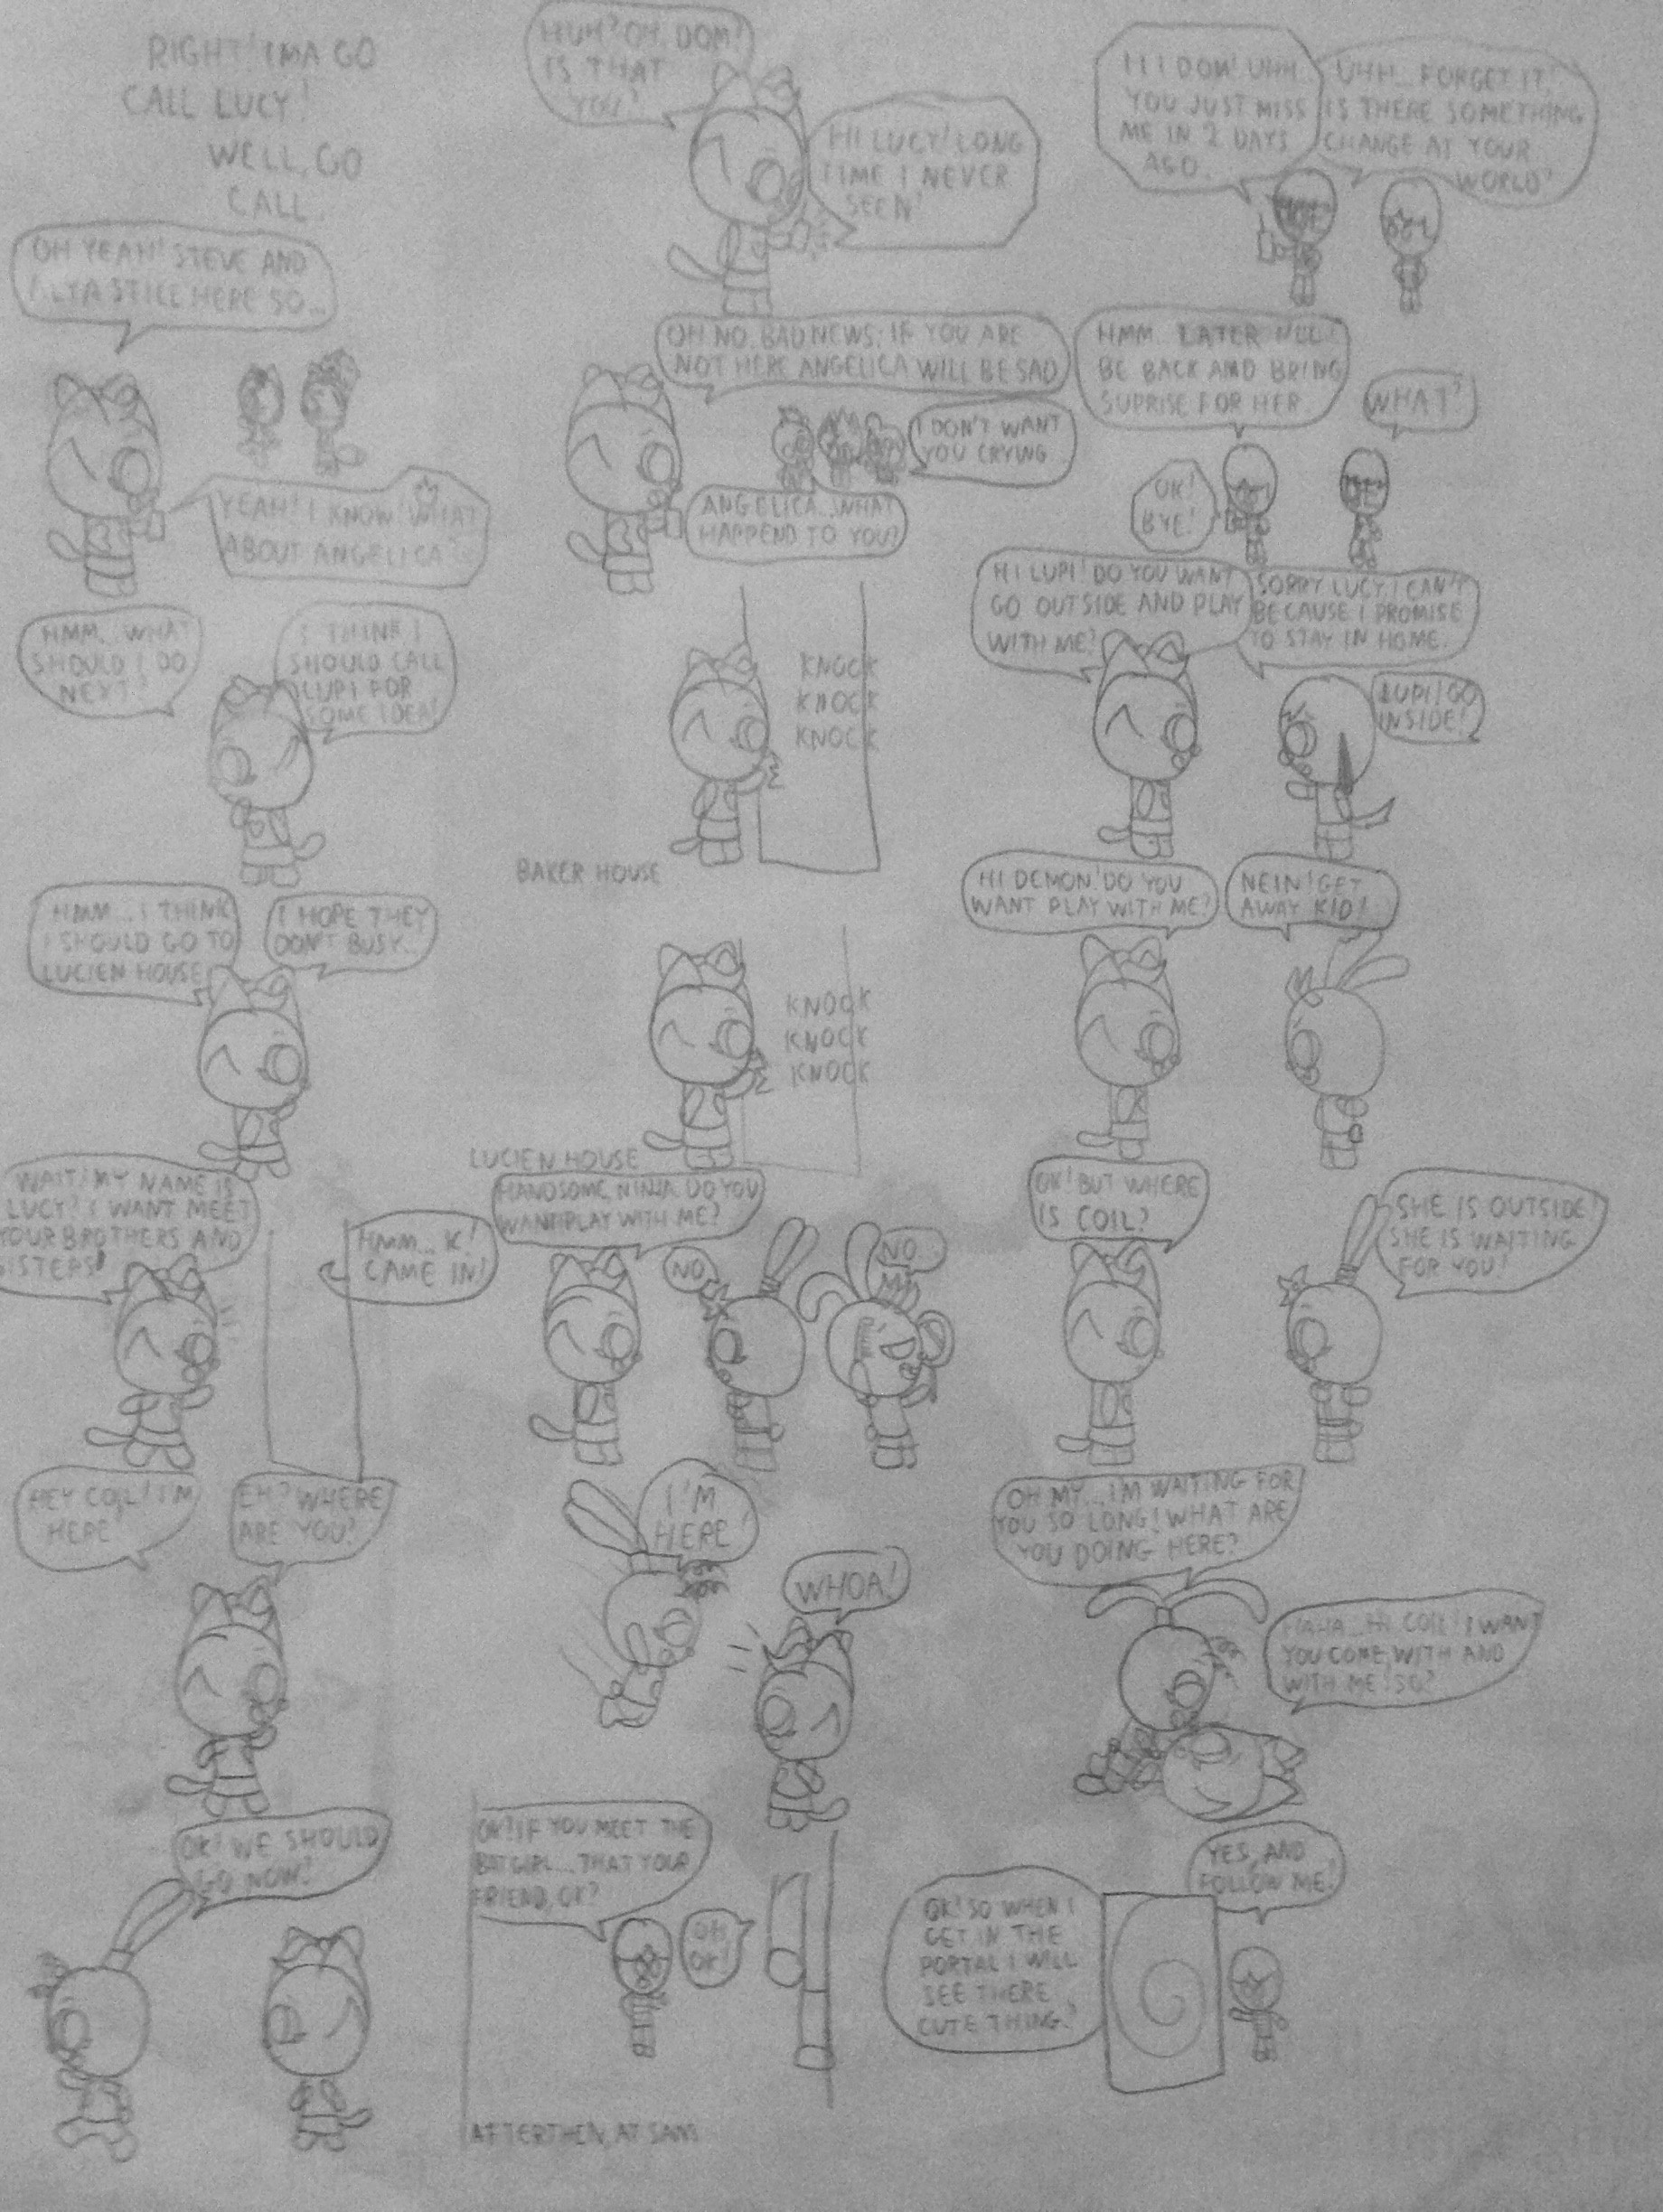 RIGHT! IMA GO
CALL LUCY!
WELL, GO
CALL.
HUH? OH, DOM!
IS THAT
YOU?
HI LUCY! LONG
TIME I NEVER
SEEN!
HI DOM! UHH..
YOU JUST MISS
ME IN 2 DAYS
AGO.
UHH.. FORGET IT!
IS THERE SOMETHING
CHANGE AT YOUR
WORLD?
OH YEAH! STEVE AND
STILL HERE SO...
YEAH! I KNOW! WHAT
ABOUT ANGELICA?
OH NO. BAD NEWS; IF YOU ARE
NOT HERE ANGELICA WILL BE SAD
I DON'T WANT
YOU CRYING
ANGELICA...WHAT
HAPPEND TO YOU?
HMM.. LATER
BE BACK AND BRING
SUPRISE FOR HER
WHAT?
OK!
BYE!
HMM.. WHAT
SHOULD I DO
NEXT?
I THINK I
SHOULD CALL
LUPI FOR
SOME IDEA!
KNOCK
KNOCK
KNOCK
BAKER HOUSE
HI LUPI! DO YOU WANT
GO OUTSIDE AND PLAY
WITH ME?
SORRY LUCY, I CAN'T
BECAUSE I PROMISE
TO STAY IN HOME.
LUPI! GO
INSIDE!
HMM... I THINK
I SHOULD GO TO
LUCIEN HOUSE
I HOPE THEY
DON'T BUSY...
KNOCK
KNOCK
KNOCK
LUCIEN HOUSE
HI DEMON! DO YOU
WANT PLAY WITH ME?
NEIN! GET
AWAY KID!
WAIT! MY NAME IS
LUCY! I WANT MEET
YOUR BROTHERS AND
SISTERS!
HMM... K!
CAME IN!
HANDSOME, NINJA. DO YOU
WANT PLAY WITH ME?
NO
NO..
OK! BUT WHERE
IS COIL?
SHE IS OUTSIDE!
SHE IS WAITING
FOR YOU!
HEY COIL! I'M
HERE!
EH? WHERE
ARE YOU?
I'M
HERE!
WHOA!
OH MY... I'M WAITING FOR
YOU SO LONG! WHAT ARE
YOU DOING HERE?
HAHA...HI COIL! I WANT
YOU COME WITH AND
WITH ME! SO?
OK! WE SHOULD
GO NOW!
OK! IF YOU MEET THE
BATGIRL... THAT YOUR
FRIEND, OK?
OH,
OK!
AFTERTHEN, AT SAM
OK! SO WHEN I
GET IN THE
PORTAL I WILL
SEE THERE
CUTE THING?
YES, AND
FOLLOW ME!